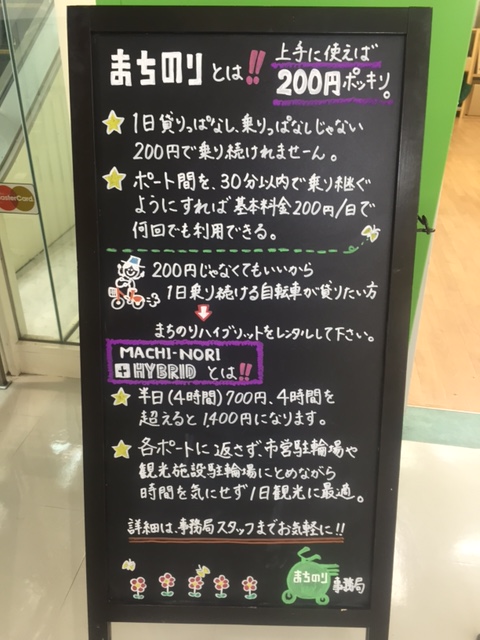 まちのりとは!!
上手に使えば
200円ポッキリ。
1日貸りっぱなし、乗りっぱなしじゃない
200円で乗り続けれませーん。
ポート間を、30分以内で乗り継ぐ
ようにすれば基本料金200円/日で
何回でも利用できる。
200円じゃなくてもいいから
1日乗り続ける自転車が貸りたい方
まちのりハイブリットをレンタルして下さい。
MACHI-NORI
+HYBRID とは!!
半日(4時間)700円、4時間を
超えると1,400円になります。
各ポートに返さず、市営駐輪場や
観光施設駐輪場にとめながら
時間を気にせず1日観光に最適。
詳細は、事務局スタッフまでお気軽に!!
まちのり 事務局
MasterCard